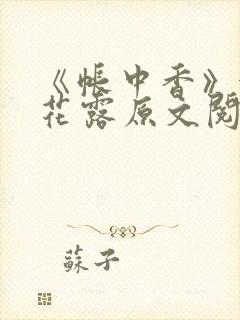 《帐中香》
花露原文阅
蘇子